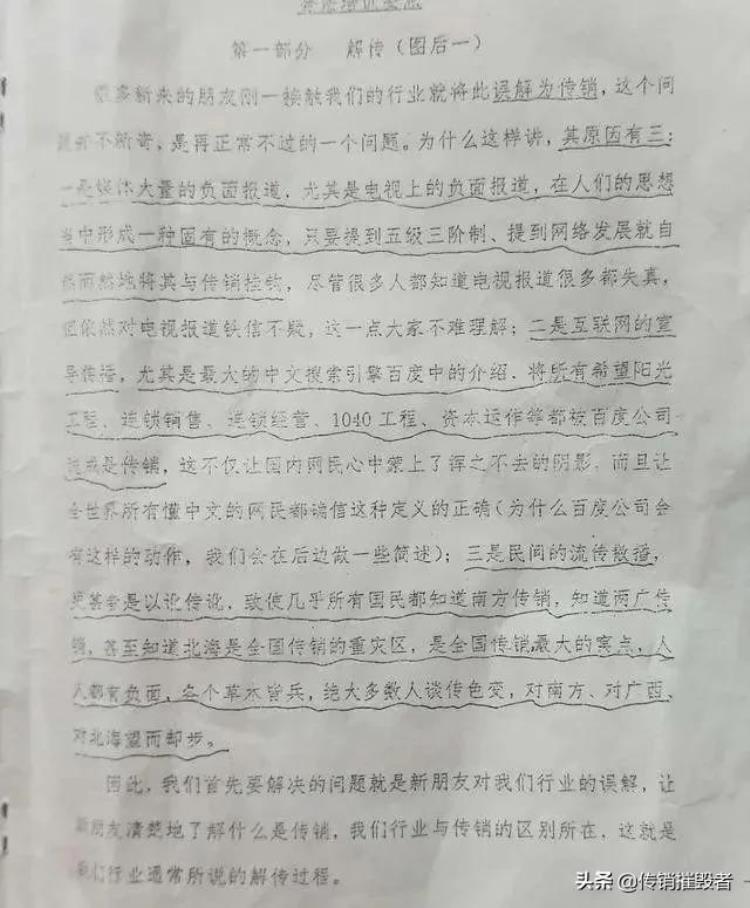 第一部分 解传（图后一）
很多新来的朋友刚一接触我们的行业就将此误解为传销，这个问
题并不新奇，是再正常不过的一个问题。为什么这样讲，其原因有三：
一是媒体大量的负面报道，尤其是电视上的负面报道，在人们的思想
当中形成一种固有的概念，只要提到五级三阶制、提到网络发展就自
然而然地将其与传销挂钩，尽管很多人都知道电视报道很多都失真，
但依然对电视报道铁信不疑，这一点大家不难理解；二是互联网的宣
导传播，尤其是最大的中文搜索引擎百度中的介绍，将所有希望阳光
工程、连锁销售、连锁经营、1040工程、资本运作等都被百度公司
说成是传销，这不仅让国内网民心中蒙上了挥之不去的阴影，而且让
全世界所有懂中文的网民都确信这种定义的正确（为什么百度公司会
有这样的动作，我们会在后边做一些简述）；三是民间的流传散播，
更甚者是以讹传讹，致使几乎所有国民都知道南方传销，知道两广传
销，甚至知道北海是全国传销的重灾区，是全国传销最大的窝点，人
人都有负面，各个草木皆兵，绝大多数人谈传色变，对南方、对广西、
对北海望而却步。
因此，我们首先要解决的问题就是新朋友对我们行业的误解，让
新朋友清楚地了解什么是传销，我们行业与传销的区别所在，这就是
我们行业通常所说的解传过程。
头条 @传销摧毁者